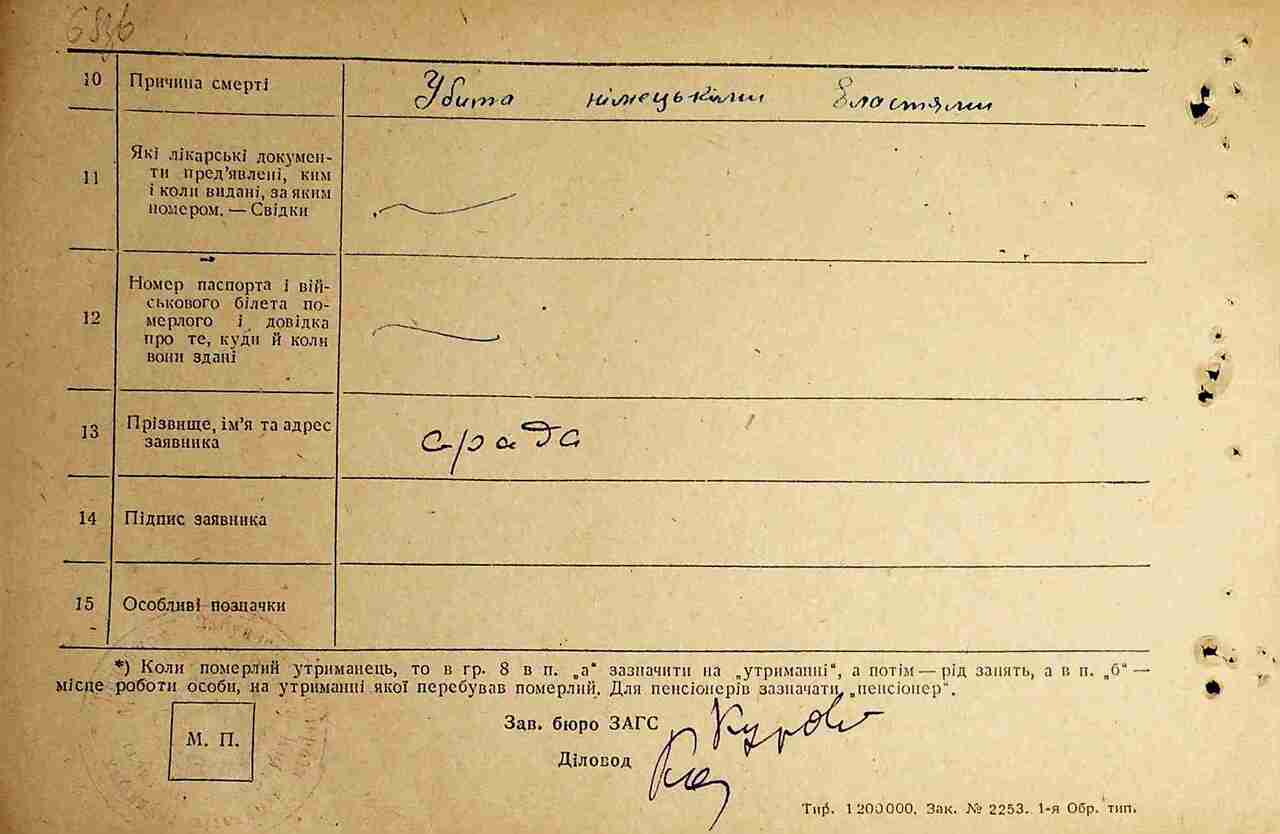 10 Причина смерті Убита німецькими властями
11 Які лікарські докумен-
ти пред’явлені, ким
і коли видані, за яким
номером. — Свідки
12 Номер паспорта і вій-
ськового білета по-
мерлого і довідка
про те, куди й коли
вони здані
13 Прізвище, ім’я та адрес
заявника
14 Підпис заявника
15 Особливі позначки
*) Коли померлий утриманець, то в гр. 8 в п. „а“ зазначити на „утриманні“, а потім — рід занять, а в п. „б“ —
місце роботи особи, на утриманні якої перебував померлий. Для пенсіонерів зазначати „пенсіонер“.
Зав. бюро ЗАГС
М. П.
Діловод
Тир. 1 200000. Зак. № 2253. 1-я Обр. тип.